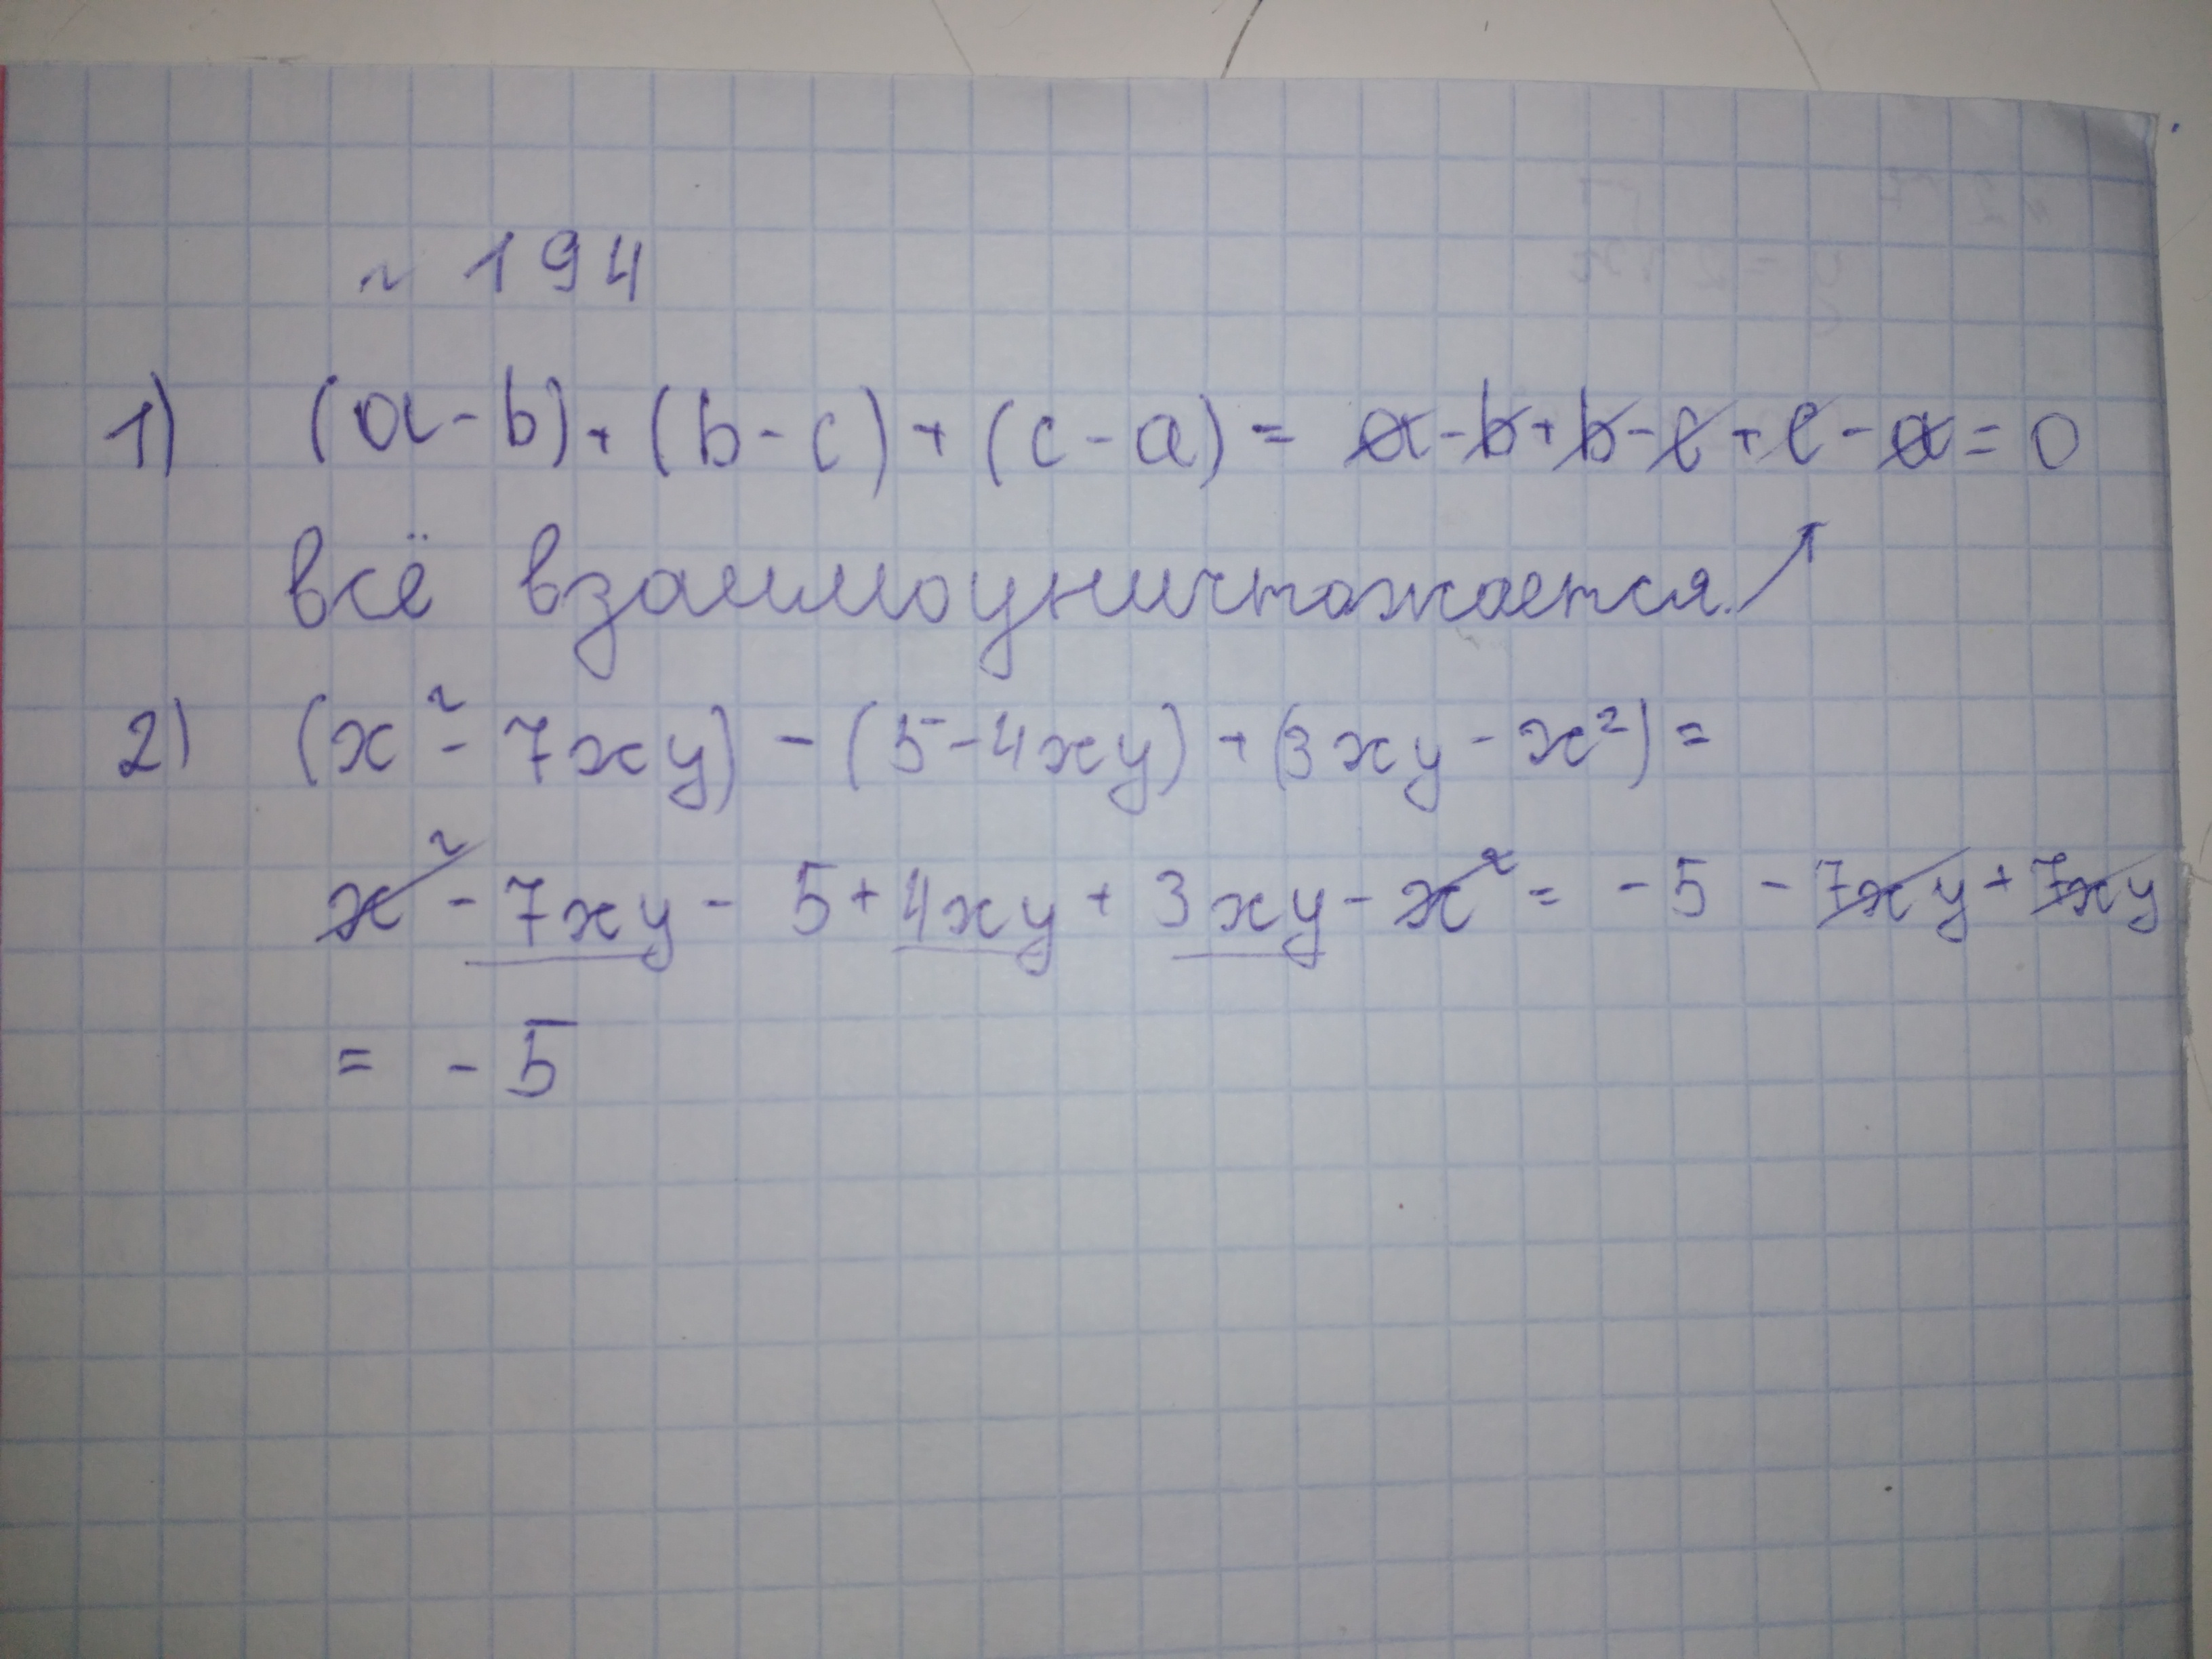 № 194
1) (a-b)+(b-c)+(c-a)= a-b+b-c+c-a=0
всё взаимоуничтожается.↗
2) (x²-7xy)-(5-4xy)+(3xy-x²)=
x²-7xy-5+4xy+3xy-x²= -5-7xy+7xy
= -5